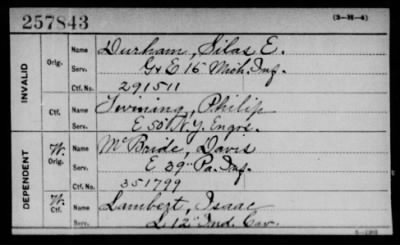 257843 (3-H-4)
INVALID
Orig. Name Durham, Silas E.
Serv. G & E 15 Mich. Inf.
Ctf. No. 291511
Ctf. Name Twining, Philip
Serv. E 50" N.Y. Engrs.
DEPENDENT
W. Orig. Name McBride, Davis
Serv. E 39" Pa. Inf.
Ctf. No. 351799
W. Ctf. Name Lambert, Isaac
Serv. L 12" Ind. Cav.